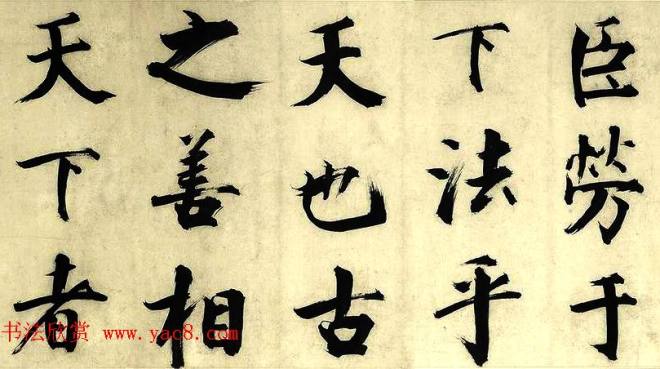 臣劳于
下法乎
天也古
之善相
天下者
书法欣赏 www.yac8.com